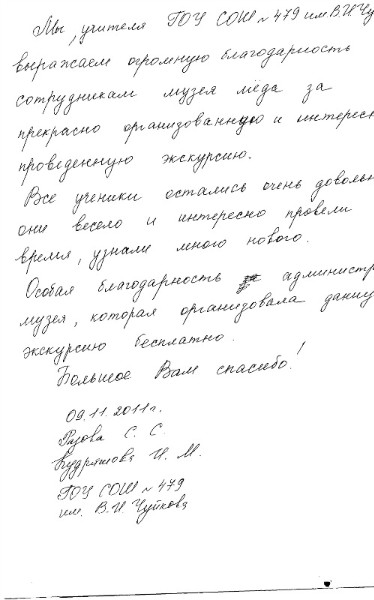 Мы, учителя ГОУ СОШ №479 им. В.И. Чу
выражаем огромную благодарность
сотрудникам музея мёда за
прекрасно организованную и интересн
проведенную экскурсию.
Все ученики остались очень доволь
они весело и интересно провели
время, узнали много нового.
Особая благодарность администр
музея, которая организовала данну
экскурсию бесплатно.
Большое Вам спасибо!
09.11.2011г.
С. С.
Кудряшова И. М.
ГОУ СОШ №479
им. В.И. Чуйкова